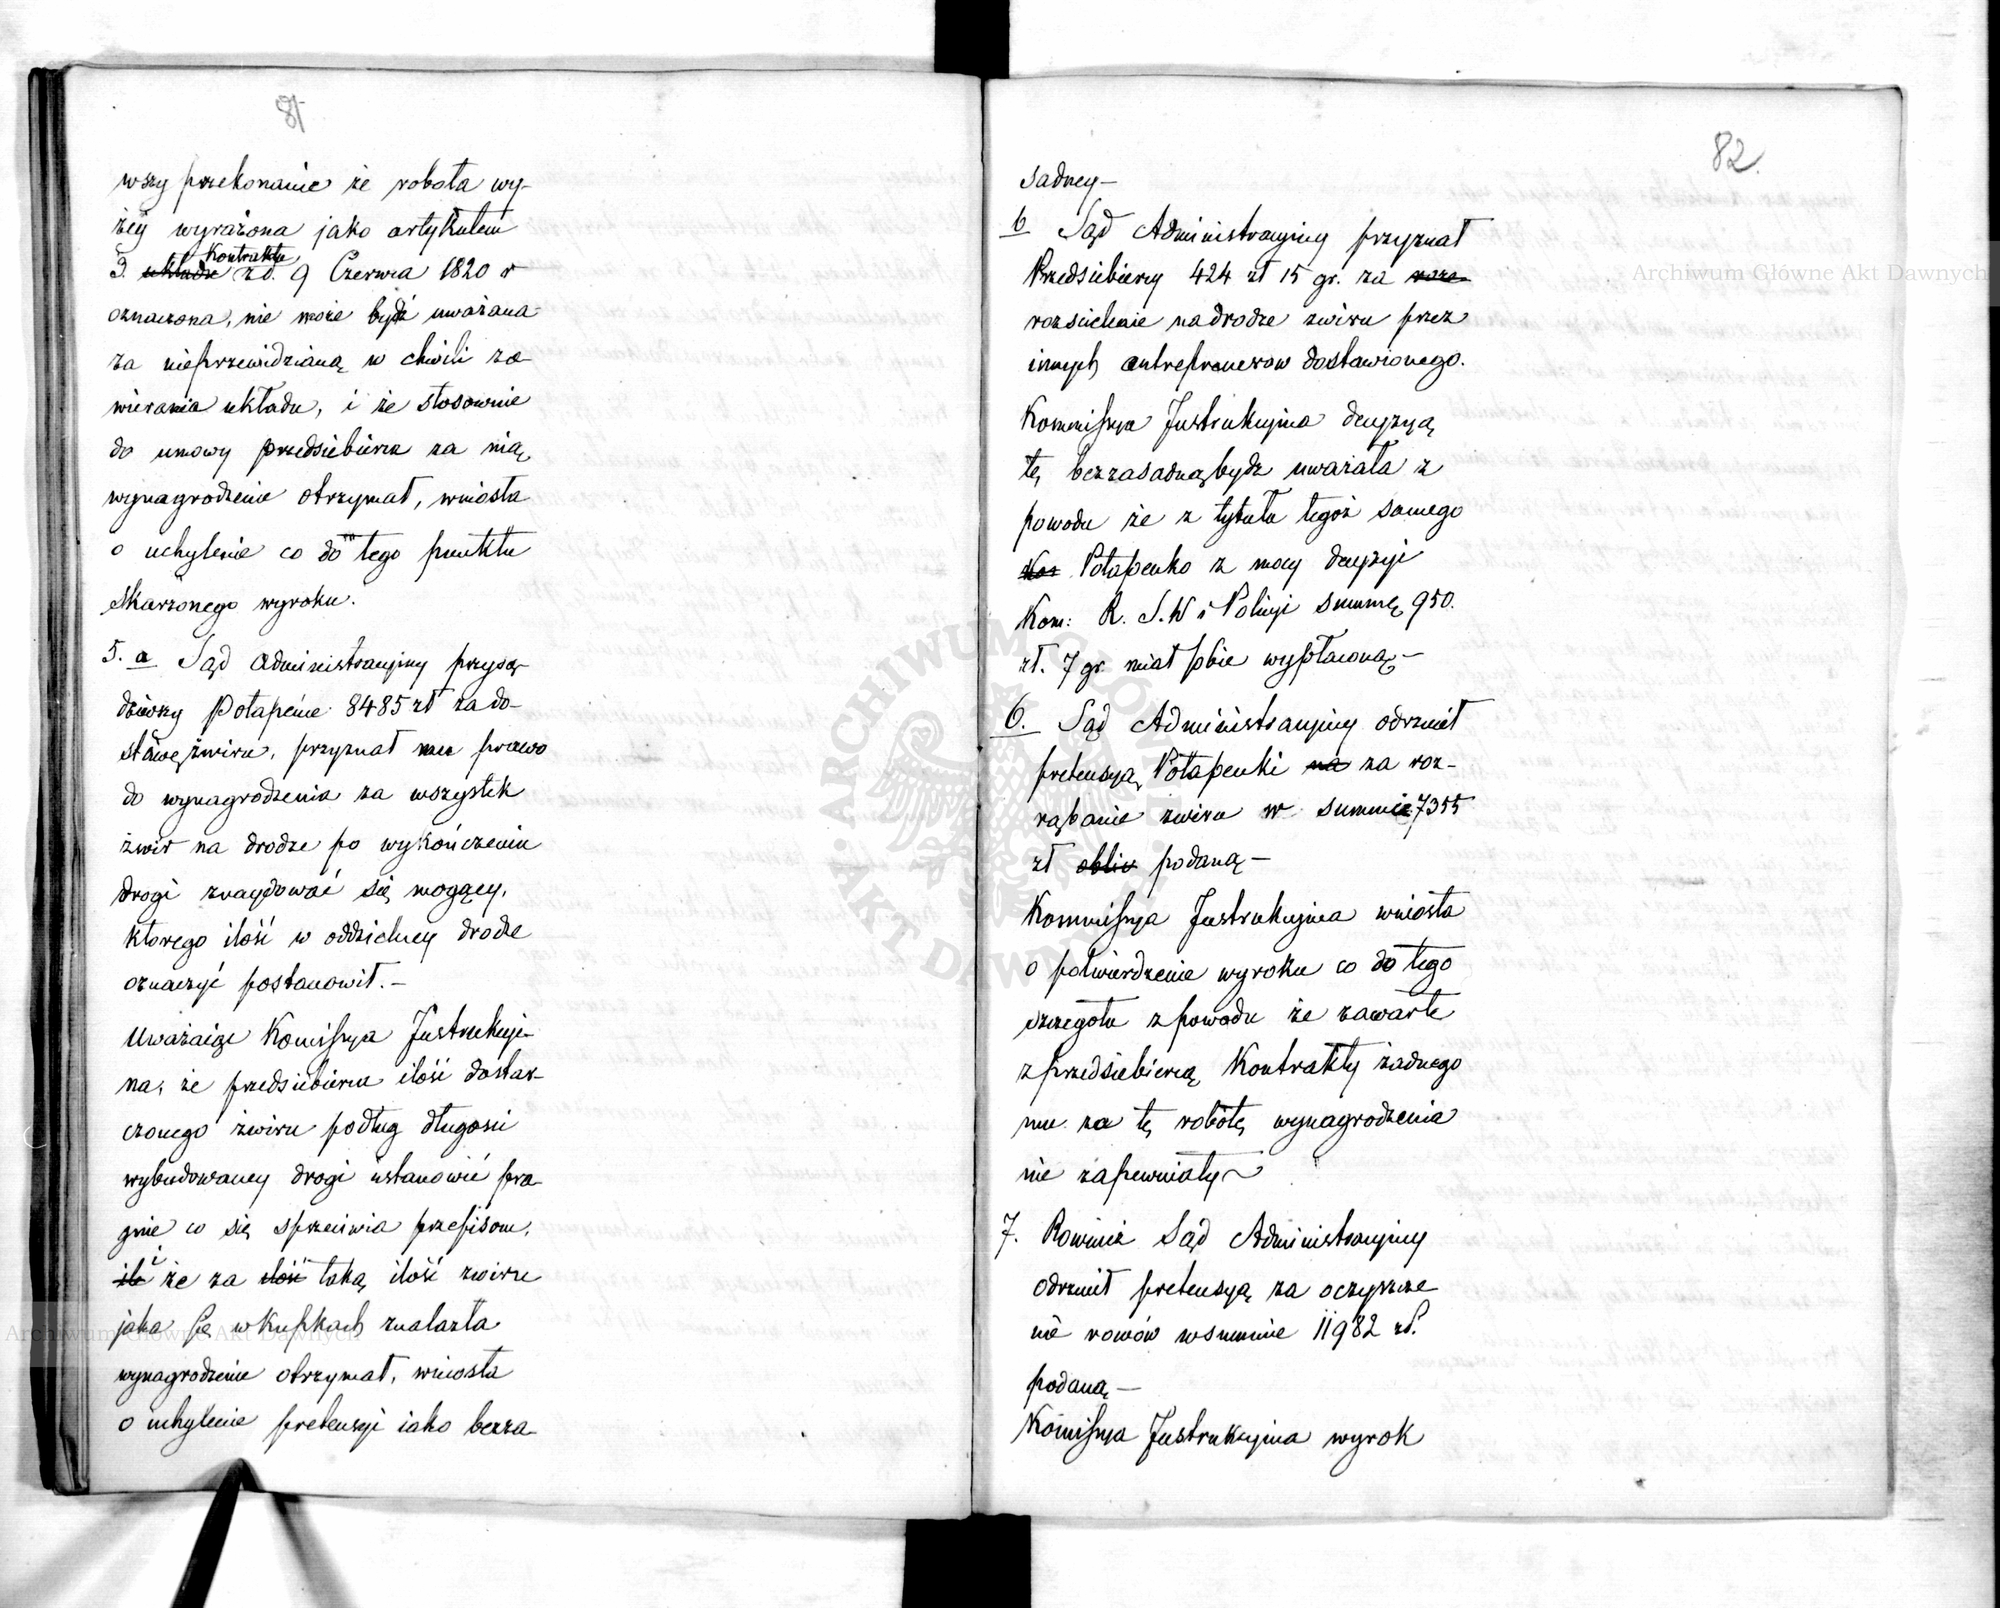 81
wszy przekonanie że robota wy-
żey wyrażona jako artykułem
3. układu Kontraktu zd. 9 Czerwca 1820 r
oznaczona, nie może bydź uważana
za nieprzewidzianą w chwili za-
wierania układu, i że stosownie
do umowy przedsiebierca za nią
wynagrodzenie otrzymał, wniosła
o uchylenie co do tego punktu
skarżonego wyroku.
5. a Sąd Administracyiny przysą-
dziwszy Potapence 8485 zł za do-
stawę żwiru, przyznał mu prawo
do wynagrodzenia za wszystek
żwir na drodze po wykończeniu
drogi znaydować się mogący,
ktorego ilość w oddzielney drodze
oznaczyć postanowił. -
Uważaiąc Kommissya Instrukcyi-
na, że przedsiebierca ilość dostar-
czonego żwiru podług długosci
wybudowaney drogi ustanowić pra-
gnie co się sprzeciwia przepisom,
ile i że za ilość taką ilość żwiru
jaka się w kupkach znalazła
wynagrodzenie otrzymał, wniosła
o uchylenie pretensyi iako bezza-
82.
sadney -
b Sąd Administracyiny przyznał
Przedsiebiercy 424 zł 15 gr. za
rozscielenie na drodze żwiru przez
innych antreprenerow dostawionego.
Kommissya Instrukcyina decyzyą
tę bezzasadną bydz uważała z
powodu że z tytułu tegoż samego
Kos Potapenko z mocy decyzyi
Kom: R. S. W i Policyi summę 950.
zł. 7 gr. miał sobie wypłaconą -
6. Sąd Administracyiny odrzucił
pretensyą Potapenki na za roz-
rąbanie żwiru w summie 7355
zł obliv podaną -
Kommissya Instrukcyina wniosła
o potwierdzenie wyroku co do tego
szczegołu z powodu że zawarte
z przedsiebiercą Kontrakty żadnego
mu za tę robotę wynagrodzenia
nie zapewniały -
7. Rownie Sąd Administracyiny
odrzucił pretensyą za oczyszcze
nie rowów w summie 11982 zł.
podaną -
Kommissya Instrukcyina wyrok
Archiwum Główne Akt Dawnych
Archiwum Główne Akt Dawnych
ARCHIWUM GŁÓWNE AKT DAWNYCH